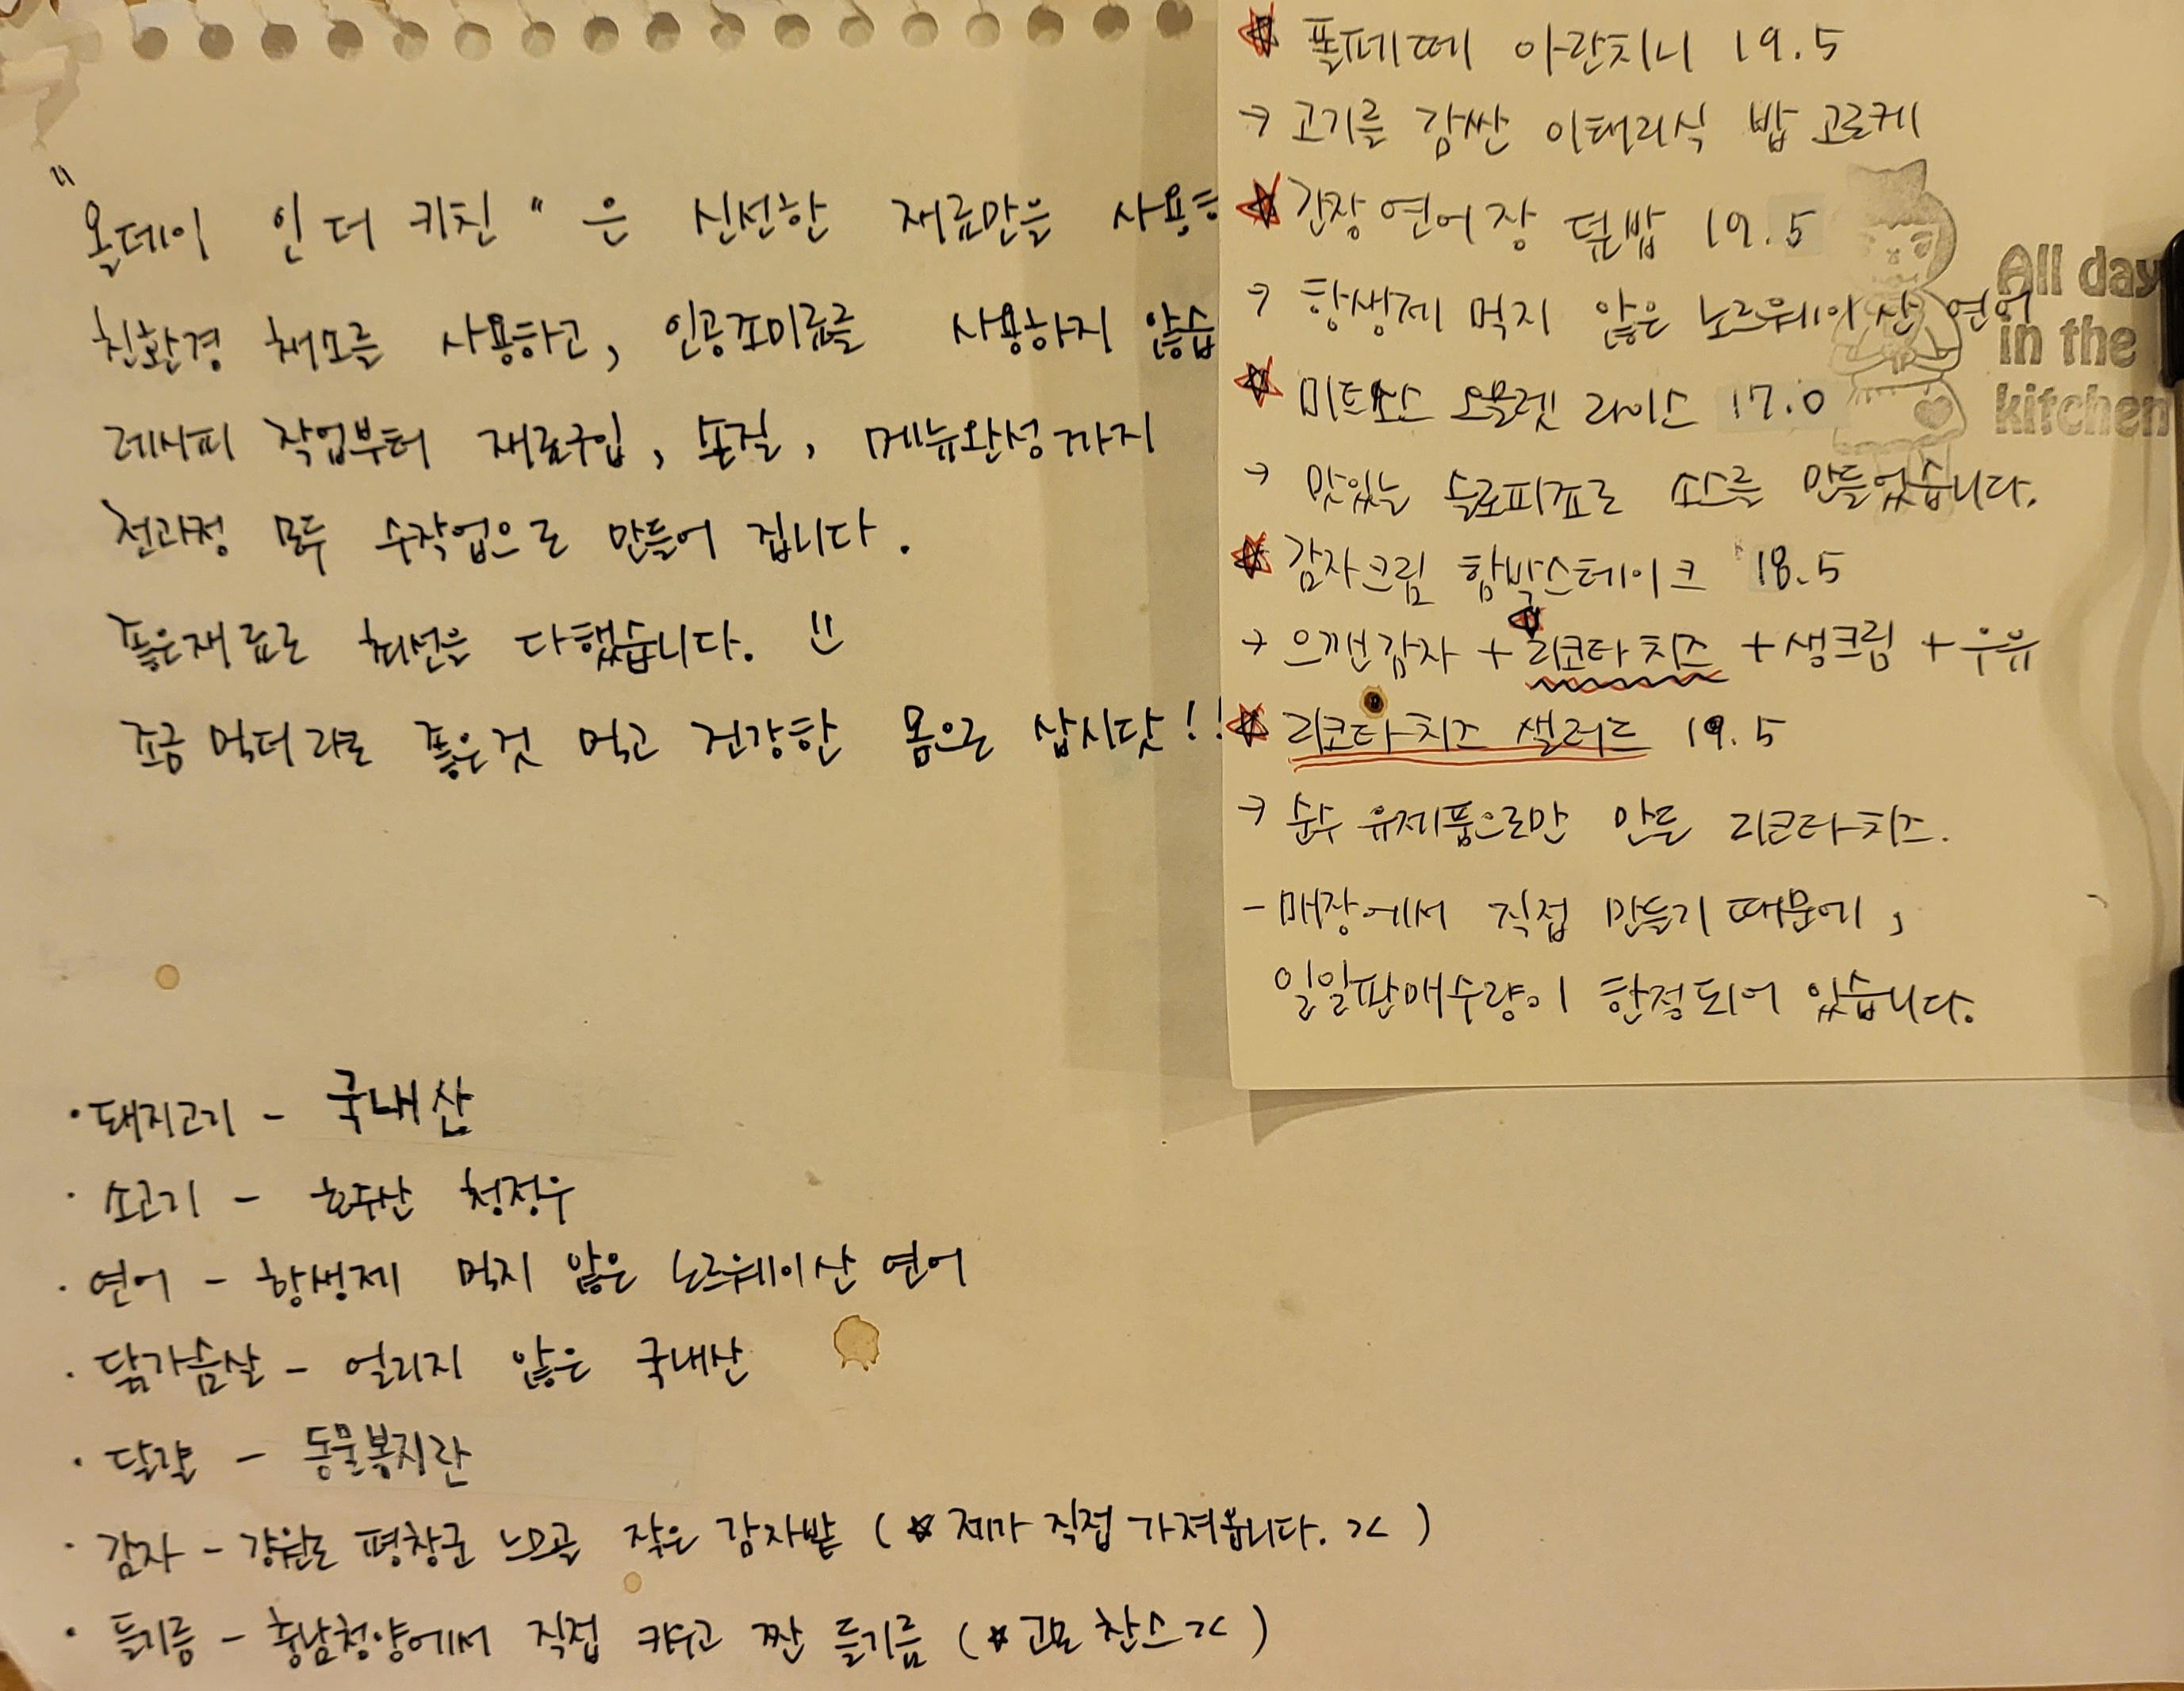 "올데이 인더키친"은 신선한 재료만을 사용
친환경 채소를 사용하고, 인공조미료를 사용하지 않습
레시피 작업부터 재료구입, 손질, 메뉴완성까지
전과정 모두 수작업으로 만들어 집니다.
좋은재료로 최선을 다했습니다. !!
조금 먹더라도 좋은것 먹고 건강한 몸으로 삽시닷!!
· 돼지고기 - 국내산
· 소고기 - 호주산 청정우
· 연어 - 항생제 먹지 않은 노르웨이산 연어
· 닭가슴살 - 얼리지 않은 국내산
· 달걀 - 동물복지란
· 감자 - 강원도 평창군 작은 감자밭 (☆ 제가 직접 가져옵니다. ><)
· 들기름 - 충남청양에서 직접 키우고 짠 들기름 (☆ 고모 찬스 ><)
☆ 폴페떼 아란치니 19.5
→ 고기를 감싼 이태리식 밥 고로케
☆ 간장연어장 덮밥 19.5
→ 항생제 먹지 않은 노르웨이산 연어
☆ 미트소스 오믈렛 라이스 17.0
→ 맛있는 슬로피죠로 소스를 만들었습니다.
☆ 감자크림 함박스테이크 18.5
→ 으깬감자 + ☆리코타치즈 + 생크림 + 우유
☆ 리코타치즈 샐러드 19.5
→ 순수 유제품으로만 만든 리코타치즈.
- 매장에서 직접 만들기 때문에,
일일판매수량이 한정되어 있습니다.
All day
in the
kitchen